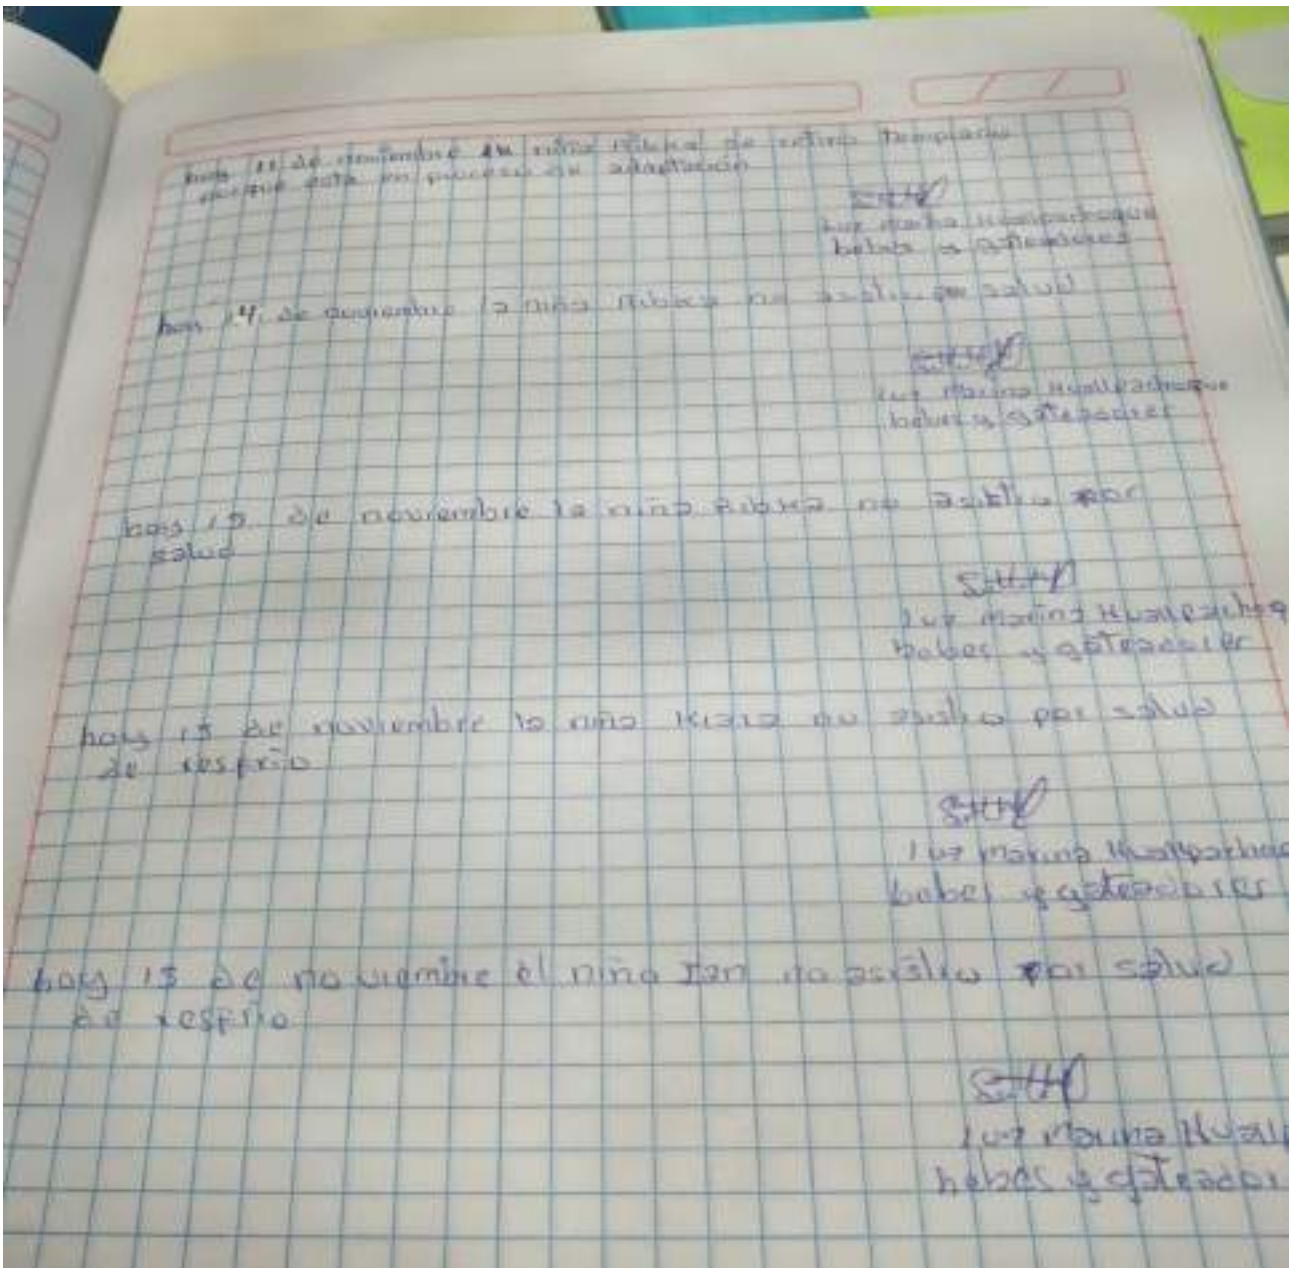 hoy 11 de noviembre la niña se retiro temprano
porque está en proceso de adaptación
Luz Marina Huallpachoque
bebes y gateadores
hoy 14 de noviembre la niña no asistio por salud
Luz Marina Huallpachoque
bebes y gateadores
hoy 15 de noviembre la niña no asistio por
salud
Luz Marina Huallpachoq
bebes y gateadores
hoy 15 de noviembre la niña Kiara no asistio por salud
de resfrio
Luz Marina Huallpachoq
bebes y gateadores
hoy 15 de noviembre el niño Ian no asistio por salud
de resfrio
Luz Marina Huall
bebes y gateador